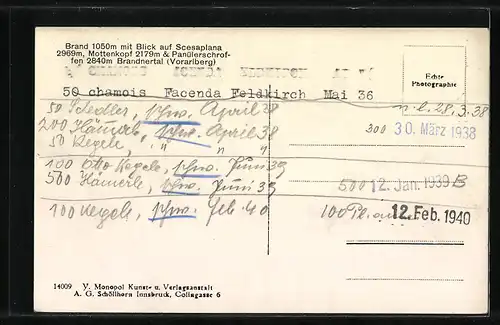 Brand 1050m mit Blick auf Scesaplana
2969m, Mottenkopf 2179m & Panülerschrof-
fen 2840m Brandnertal (Vorarlberg)
Echte
Photographie
50 chamois Facenda Feldkirch Mai 36
n.l. 28.3.38
50 Schw. April 38
300 30. März 1938
200 Hämmerle, Schw. April 38
50 Kegele, " " "
100 Otto Kegele, Schw. Juni 39
500 Hämerle, Schw. Juni 39
500 12. Jan. 1939 B
100 Kegele, Schw. Feb. 40
100 Pl. 12. Feb. 1940
14009 V. Monopol Kunst- u. Verlagsanstalt
A. G. Schöllhorn Innsbruck, Colingasse 6